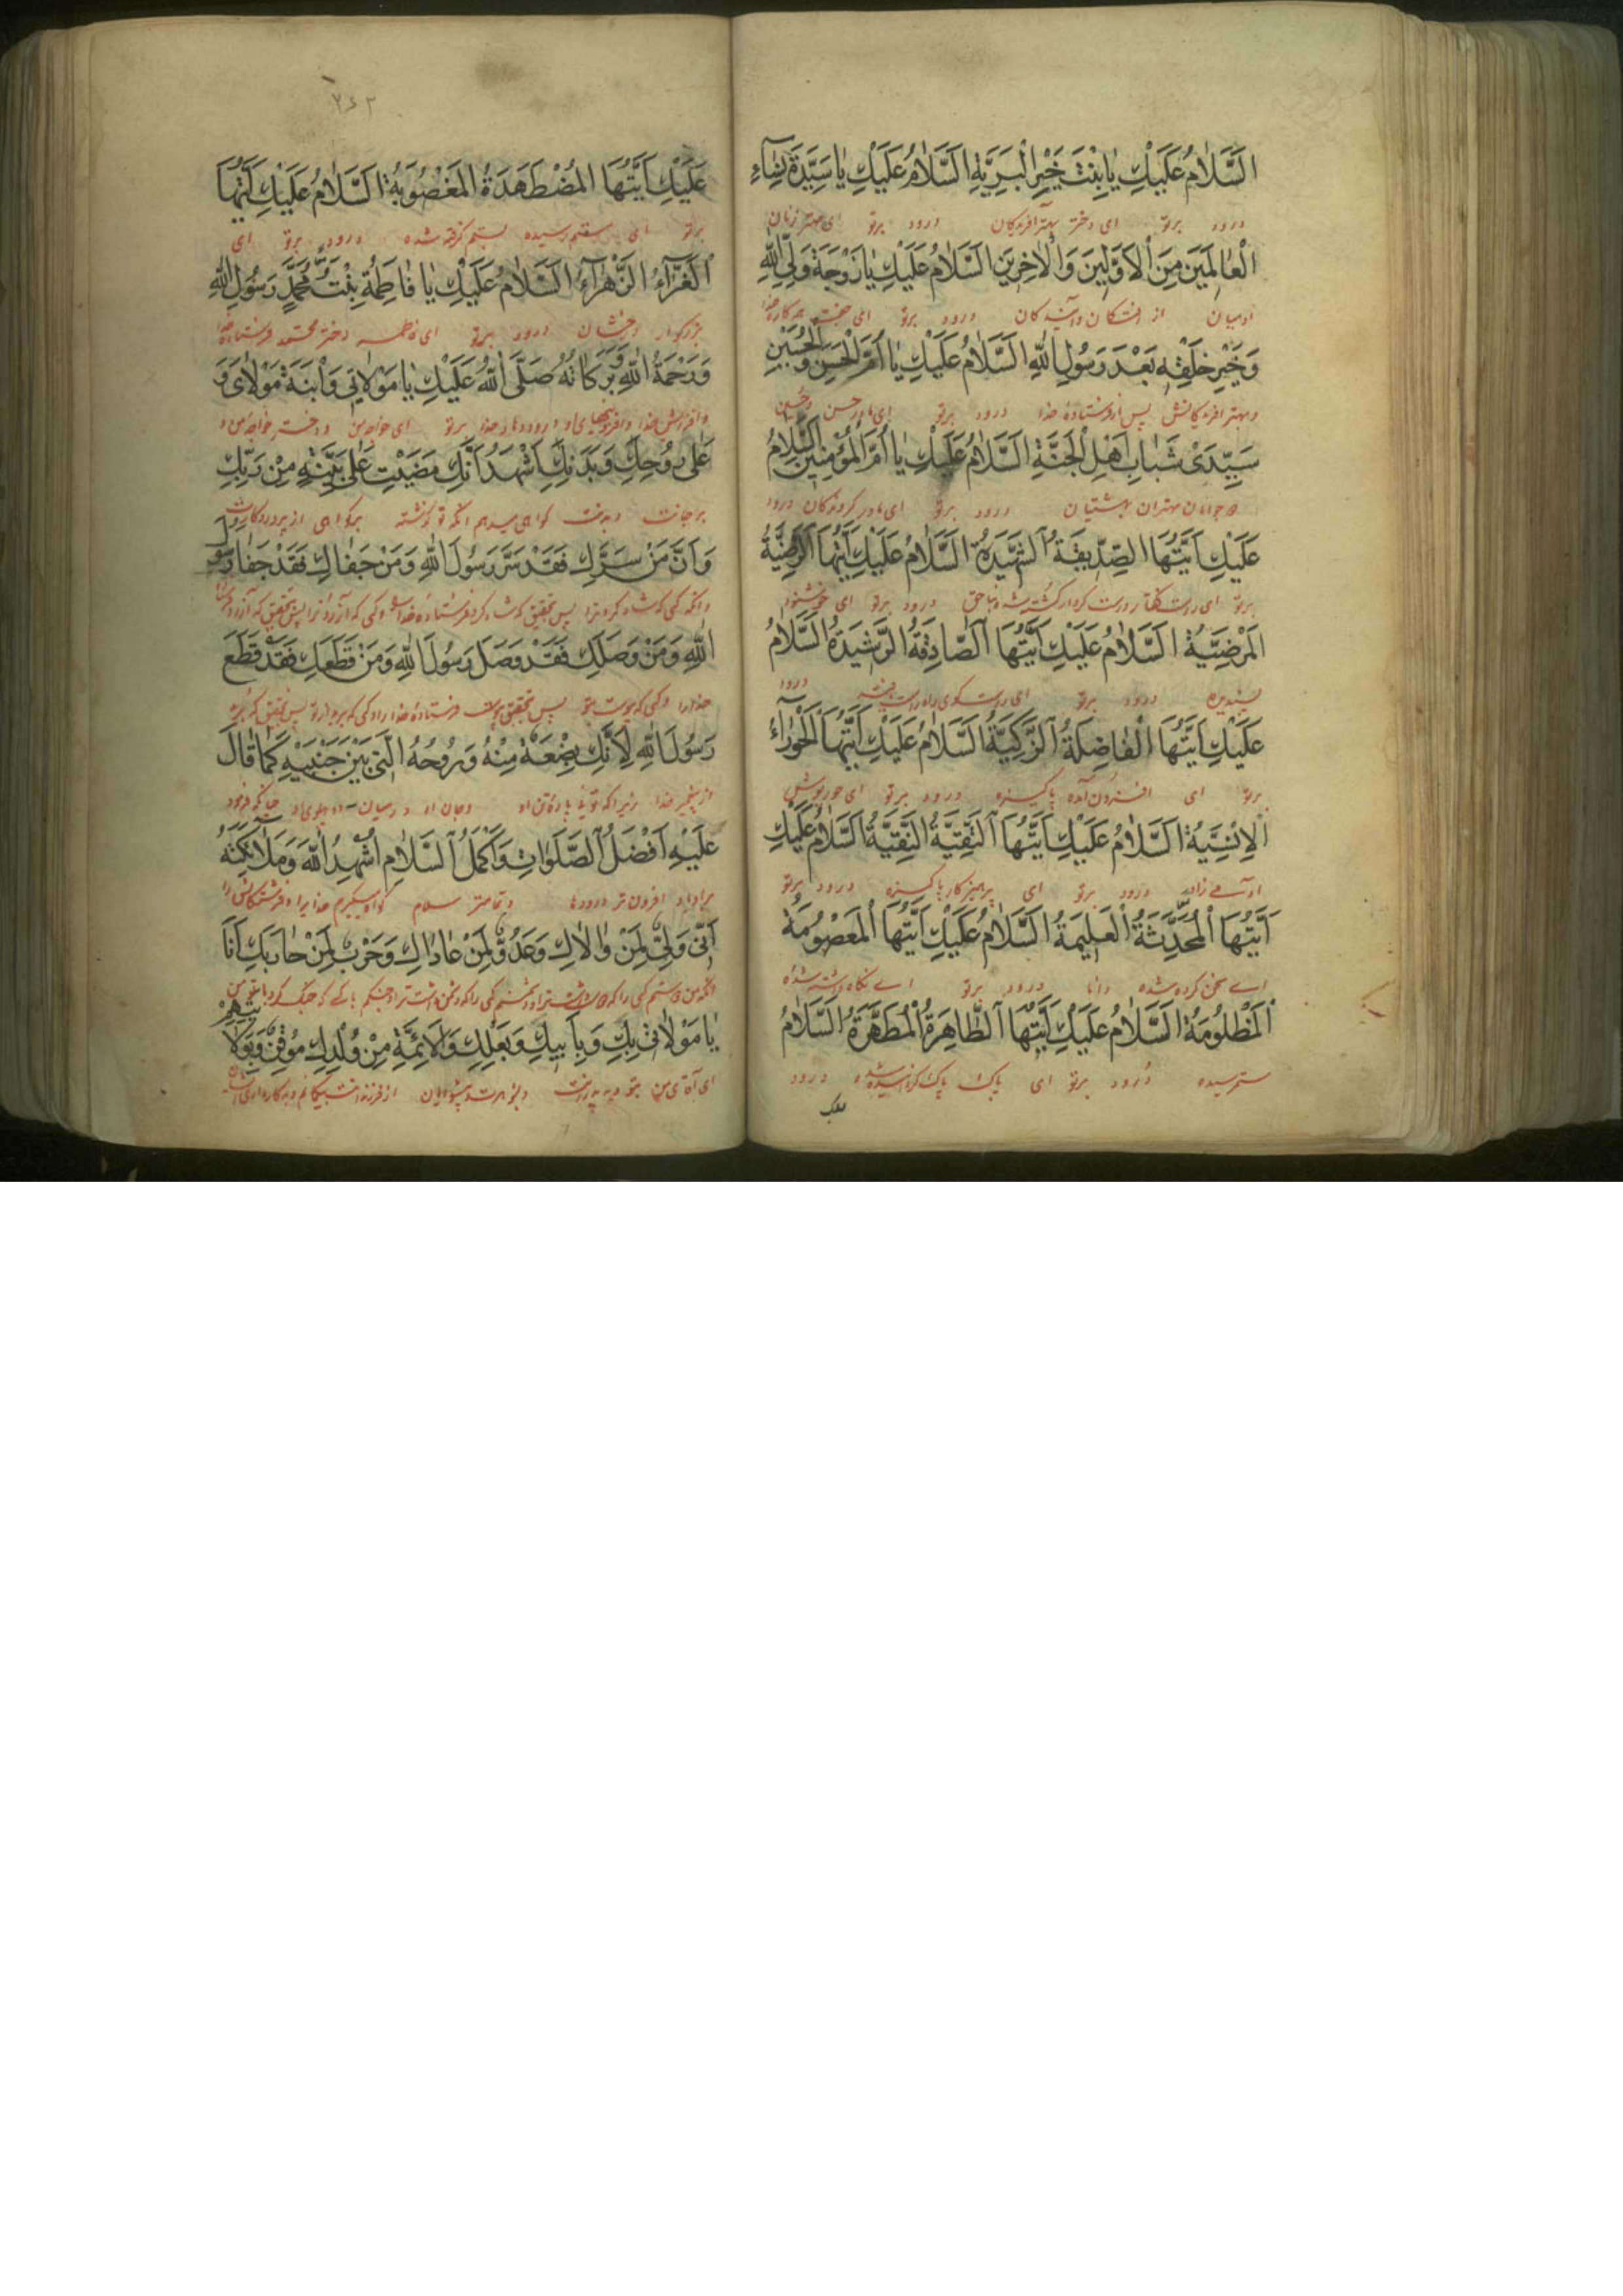 اَلسَّلامُ عَلَيْكِ يا بِنْتَ خَيْرِ الْبَرِيَّةِ اَلسَّلامُ عَلَيْكِ يا سَيِّدَةَ نِساءِ
درود برتو ای دختر بهتر آفریدکان درود برتو ای مهتر زنان
الْعالَمينَ مِنَ الْاَوَّلينَ وَالْاخِرينَ اَلسَّلامُ عَلَيْكِ يا زَوْجَةَ وَلِيِّ اللهِ
ادمیان از درود برتو ای جفت
وَخَيْرِ خَلْقِهِ بَعْدَ رَسُولِ اللهِ اَلسَّلامُ عَلَيْكِ يا اُمَّ الْحَسَنِ وَالْحُسَيْنِ
وبهتر افریدکانش پس از فرستادۀ خدا درود برتو ای مادر حسن وحسین
سَيِّدَيْ شَبابِ اَهْلِ الْجَنَّةِ اَلسَّلامُ عَلَيْكِ يا اُمَّ الْمُؤْمِنينَ اَلسَّلامُ
جوانان مهتران بهشتیان درود برتو ای مادر کروندکان درود
عَلَيْكِ اَيَّتُهَا الصِّدّيقَةُ الشَّهيدَةُ اَلسَّلامُ عَلَيْكِ اَيَّتُهَا الرَّضِيَّةُ
برتو ای راست کفتار درست کردار کشته شده بناحق درود برتو ای خوشنود
الْمَرْضِيَّةُ اَلسَّلامُ عَلَيْكِ اَيَّتُهَا الصّادِقَةُ الرَّشيدَةُ اَلسَّلامُ
پسندیده درود برتو ای راست کوی راه راست یافته درود
عَلَيْكِ اَيَّتُهَا الْفاضِلَةُ الزَّكِيَّةُ اَلسَّلامُ عَلَيْكِ اَيَّتُهَا الْحَوْراءُ
برتو ای افزون آمده پاکیزه درود برتو ای حوروش
الْاِنْسِيَّةُ اَلسَّلامُ عَلَيْكِ اَيَّتُهَا التَّقِيَّةُ النَّقِيَّةُ اَلسَّلامُ عَلَيْكِ
ادمی زاد درود برتو ای پرهیزکار پاکیزه درود برتو
اَيَّتُهَا الْمُحَدَّثَةُ الْعَليمَةُ اَلسَّلامُ عَلَيْكِ اَيَّتُهَا الْمَعْصُومَةُ
ای سخن کرده شده دانا درود برتو ای نکاه داشته شده
الْمَظْلُومَةُ اَلسَّلامُ عَلَيْكِ اَيَّتُهَا الطّاهِرَةُ الْمُطَهَّرَةُ اَلسَّلامُ
ستم رسیده درود برتو ای پاک پاک کردانیده شده درود
علیک
۲۶۲
عَلَيْكِ اَيَّتُهَا الْمُضْطَهَدَةُ الْمَغْصُوبَةُ اَلسَّلامُ عَلَيْكِ اَيَّتُهَا
برتو ای ستم رسیده بستم کرفته شده درود برتو ای
الْغَرّاءُ الزَّهْراءُ اَلسَّلامُ عَلَيْكِ يا فاطِمَةُ بِنْتَ مُحَمَّدٍ رَسُولِ اللهِ
بزرکوار درخشان درود برتو ای فاطمه دختر محمد فرستادۀ خدا
وَرَحْمَةُ اللهِ وَبَرَكاتُهُ صَلَّى اللهُ عَلَيْكِ يا مَوْلاتي وَابْنَةَ مَوْلايَ وَ
درود خدا برتو ای خواجه من ودختر خواجه من و
عَلى رُوحِكِ وَبَدَنِكِ اَشْهَدُ اَنَّكِ مَضَيْتِ عَلى بَيِّنَةٍ مِنْ رَبِّكِ
برجانت وبدنت کواهی میدهم انکه تو کذشته برکواهی از پروردکارت
وَاَنَّ مَنْ سَرَّكِ فَقَدْ سَرَّ رَسُولَ اللهِ وَمَنْ جَفاكِ فَقَدْ جَفا رَسُولَ
وانکه کسی که شاد کرد ترا پس بتحقیق که شاد کرد فرستادۀ خدا
اللهِ وَمَنْ وَصَلَكِ فَقَدْ وَصَلَ رَسُولَ اللهِ وَمَنْ قَطَعَكِ فَقَدْ قَطَعَ
خدا را وکسی که پیوست بتو پس بتحقیق فرستادۀ خدا را
رَسُولَ اللهِ لِاَنَّكِ بِضْعَةٌ مِنْهُ وَرُوحُهُ الَّتي بَيْنَ جَنْبَيْهِ كَما قالَ
از پیغمبر خدا زیراکه تویی پارۀ تن او وجان او در میان دو پهلوی او چنانکه فرمود
عَلَيْهِ اَفْضَلُ الصَّلَواتِ وَاَكْمَلُ السَّلامِ اُشْهِدُ اللهَ وَمَلائِكَتَهُ
بر او باد افزون تر درودها وتمامتر سلام کواه میکیرم خدایرا وفرشتکانش را
اَنّي وَلِيٌّ لِمَنْ والاكِ وَعَدُوٌّ لِمَنْ عاداكِ وَحَرْبٌ لِمَنْ حارَبَكِ اَنَا
يا مَوْلاتي بِكِ وَبِاَبيكِ وَبَعْلِكِ وَالْاَئِمَّةِ مِنْ وُلْدِكِ مُوقِنٌ وَبِوَلايَتِهِمْ
ای من بتو وپدرت وشوهرت وپیشوایان از فرزندانت